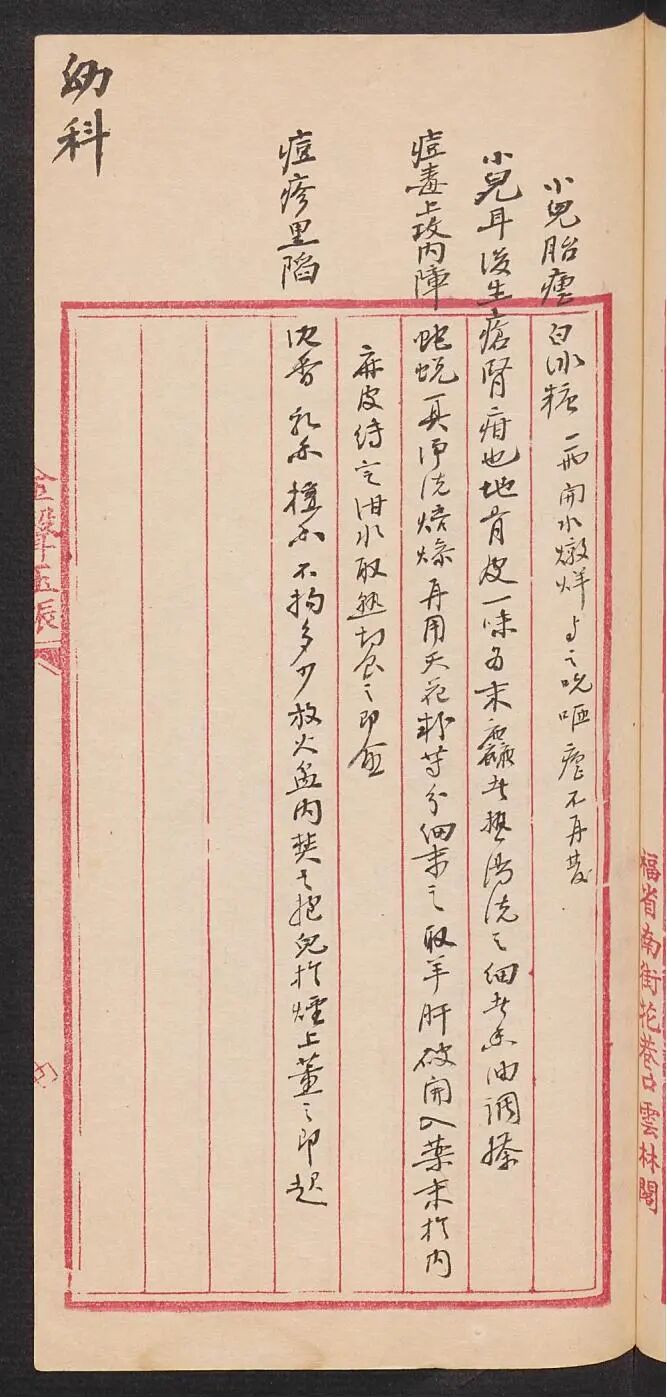 幼科
小兒胎瘧 白冰糖一兩開水燉烊与之吮咂瘧不再發
小兒耳後生瘡腎疳也地骨皮一味為末麤者熱湯洗之細者香油調搽
痘毒上攻內障 蛇蛻一具净洗焙燥再用天花粉等分細末之取羊肝破開入藥末於內
麻皮縛定泔水取熟切食之即愈
痘疹里陷 沈香 乳香 檀香 不拘多少放火盆內焚之抱兒於煙上薰之即起
金聲玉振
福省南街花巷口雲林閣